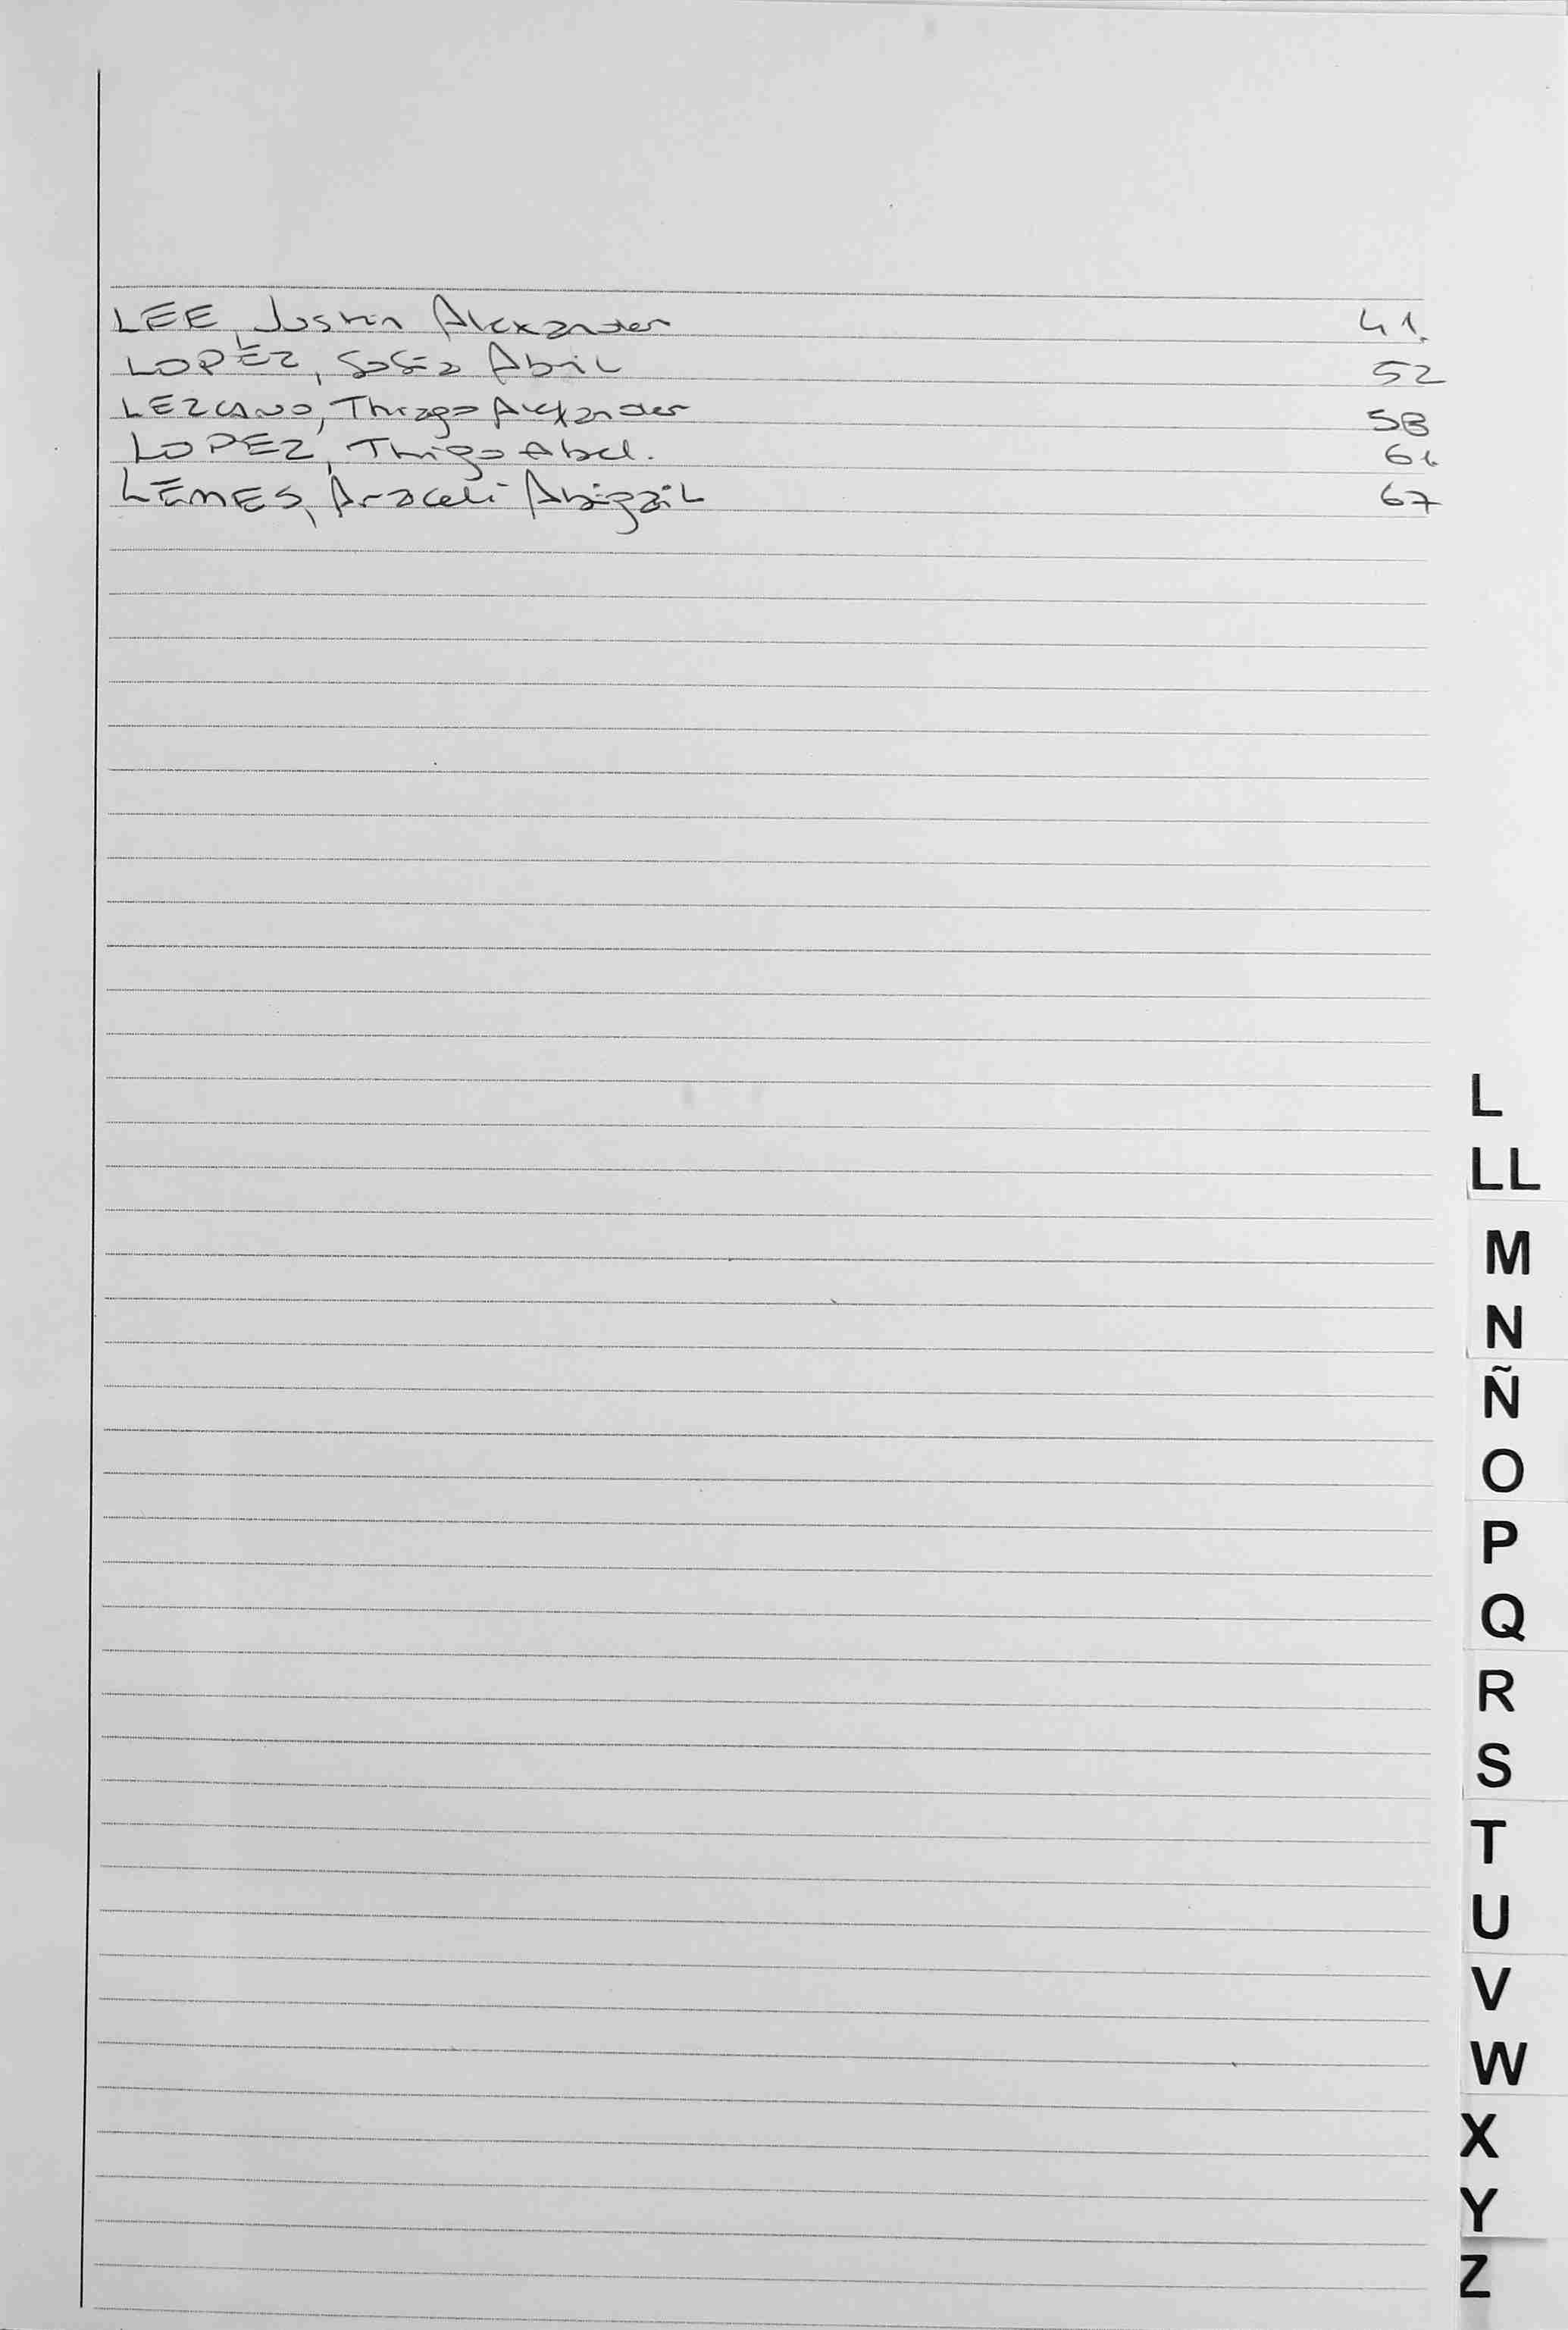 LEE, Justin Alexander 41.
LOPEZ, Sofia Abril 52
LEZCANO, Thiago Alexander 58
LOPEZ, Thigo Abel. 61
LEMES, Araceli Abigail 67
L
LL
M
N
Ñ
O
P
Q
R
S
T
U
V
W
X
Y
Z